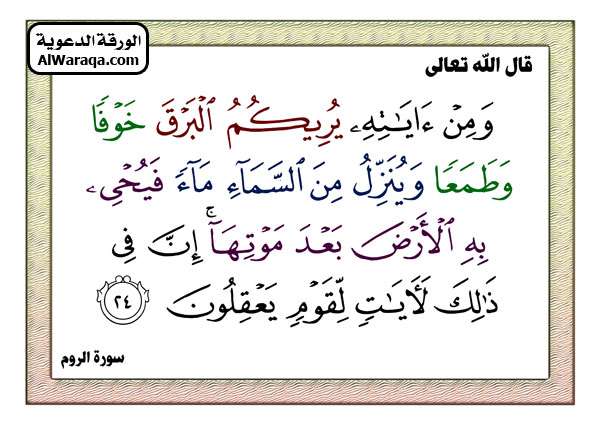 الورقة الدعوية
AlWaraqa.com
قال الله تعالى
وَمِنۡ ءَايَٰتِهِۦ يُرِيكُمُ ٱلۡبَرۡقَ خَوۡفٗا
وَطَمَعٗا وَيُنَزِّلُ مِنَ ٱلسَّمَآءِ مَآءٗ فَيُحۡيِۦ
بِهِ ٱلۡأَرۡضَ بَعۡدَ مَوۡتِهَآۚ إِنَّ فِي
ذَٰلِكَ لَأٓيَٰتٖ لِّقَوۡمٖ يَعۡقِلُونَ ٢٤
سورة الروم